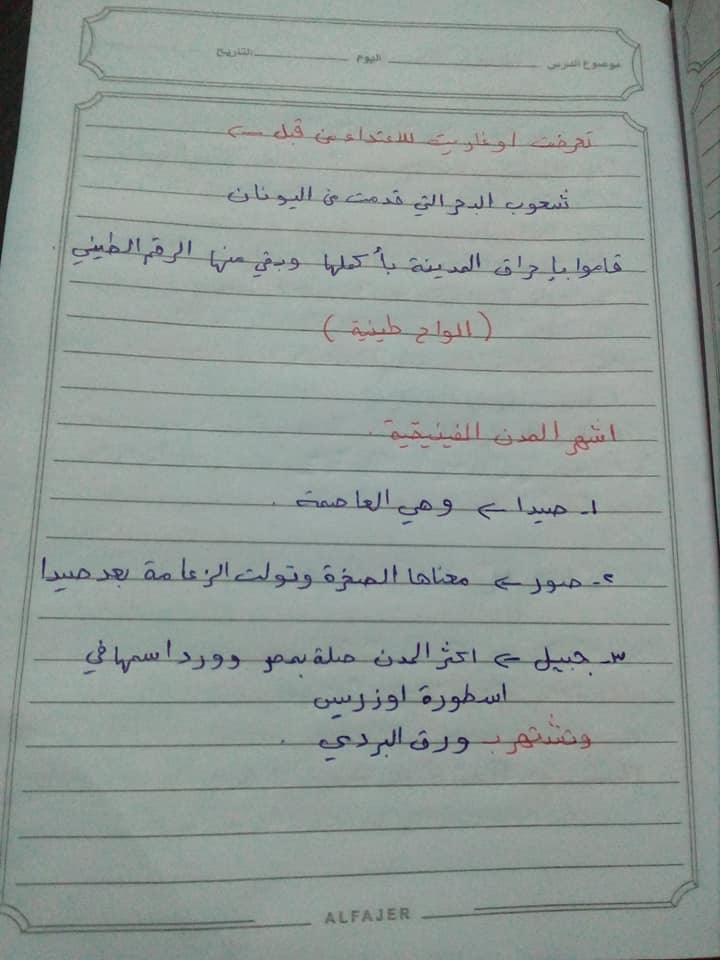 موضوع الدرس ـــــــ اليوم ـــــــ التاريخ ـــــــ
تعرضت اوغاريت للاعتداء من قبل ←
شعوب البحر التي قدمت من اليونان
قاموا بإحراق المدينة بأكملها وبقي منها الرقم الطيني.
(الواح طينية)
اشهر المدن الفينيقية.
١- صيدا ← وهي العاصمة.
٢- صور ← معناها الصخرة وتولت الزعامة بعد صيدا
٣- جبيل ← اكثر المدن صلة بمصر وورد اسمها في
اسطورة اوزريس
وتشتهر بـ ورق البردي.
ALFAJER